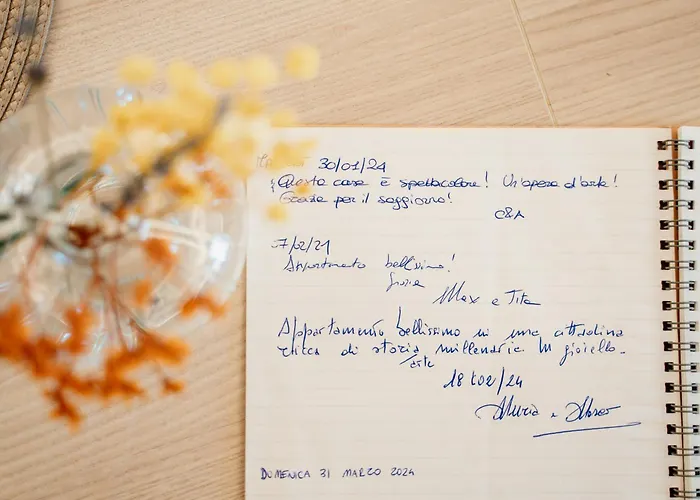 30/01/24
Questa casa è spettacolare! Un'opera d'arte!
Grazie per il soggiorno!
C&A
7/02/21
Appartamento bellissimo!
Max e Tita
Appartamento bellissimo in una cittadina
ricca di storia millenaria. Un gioiello.
arte
18 /02/24
DOMENICA 31 MARZO 2024